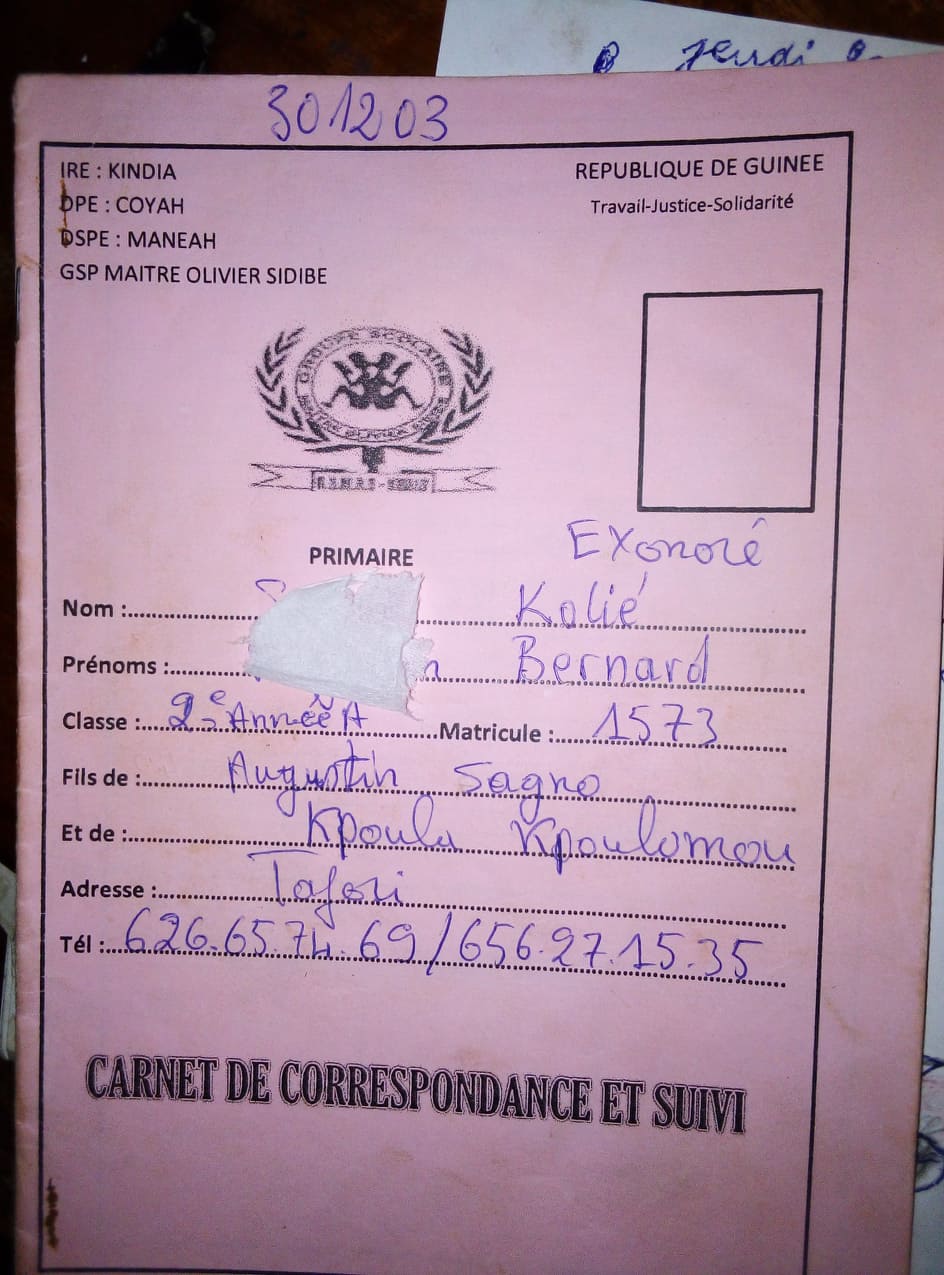 Jeudi
301203
IRE : KINDIA
REPUBLIQUE DE GUINEE
DPE : COYAH
Travail-Justice-Solidarité
DSPE : MANEAH
GSP MAITRE OLIVIER SIDIBE
GROUPE SCOLAIRE
PRIMAIRE
Exonoré
Nom : Kolié
Prénoms : Bernard
Classe : 2e Année A Matricule : 1573
Fils de : Augustin Sagno
Et de : Kpoulu Kpoulomou
Adresse : Tafori
Tél : 626.65.74.69/656.27.15.35
CARNET DE CORRESPONDANCE ET SUIVI